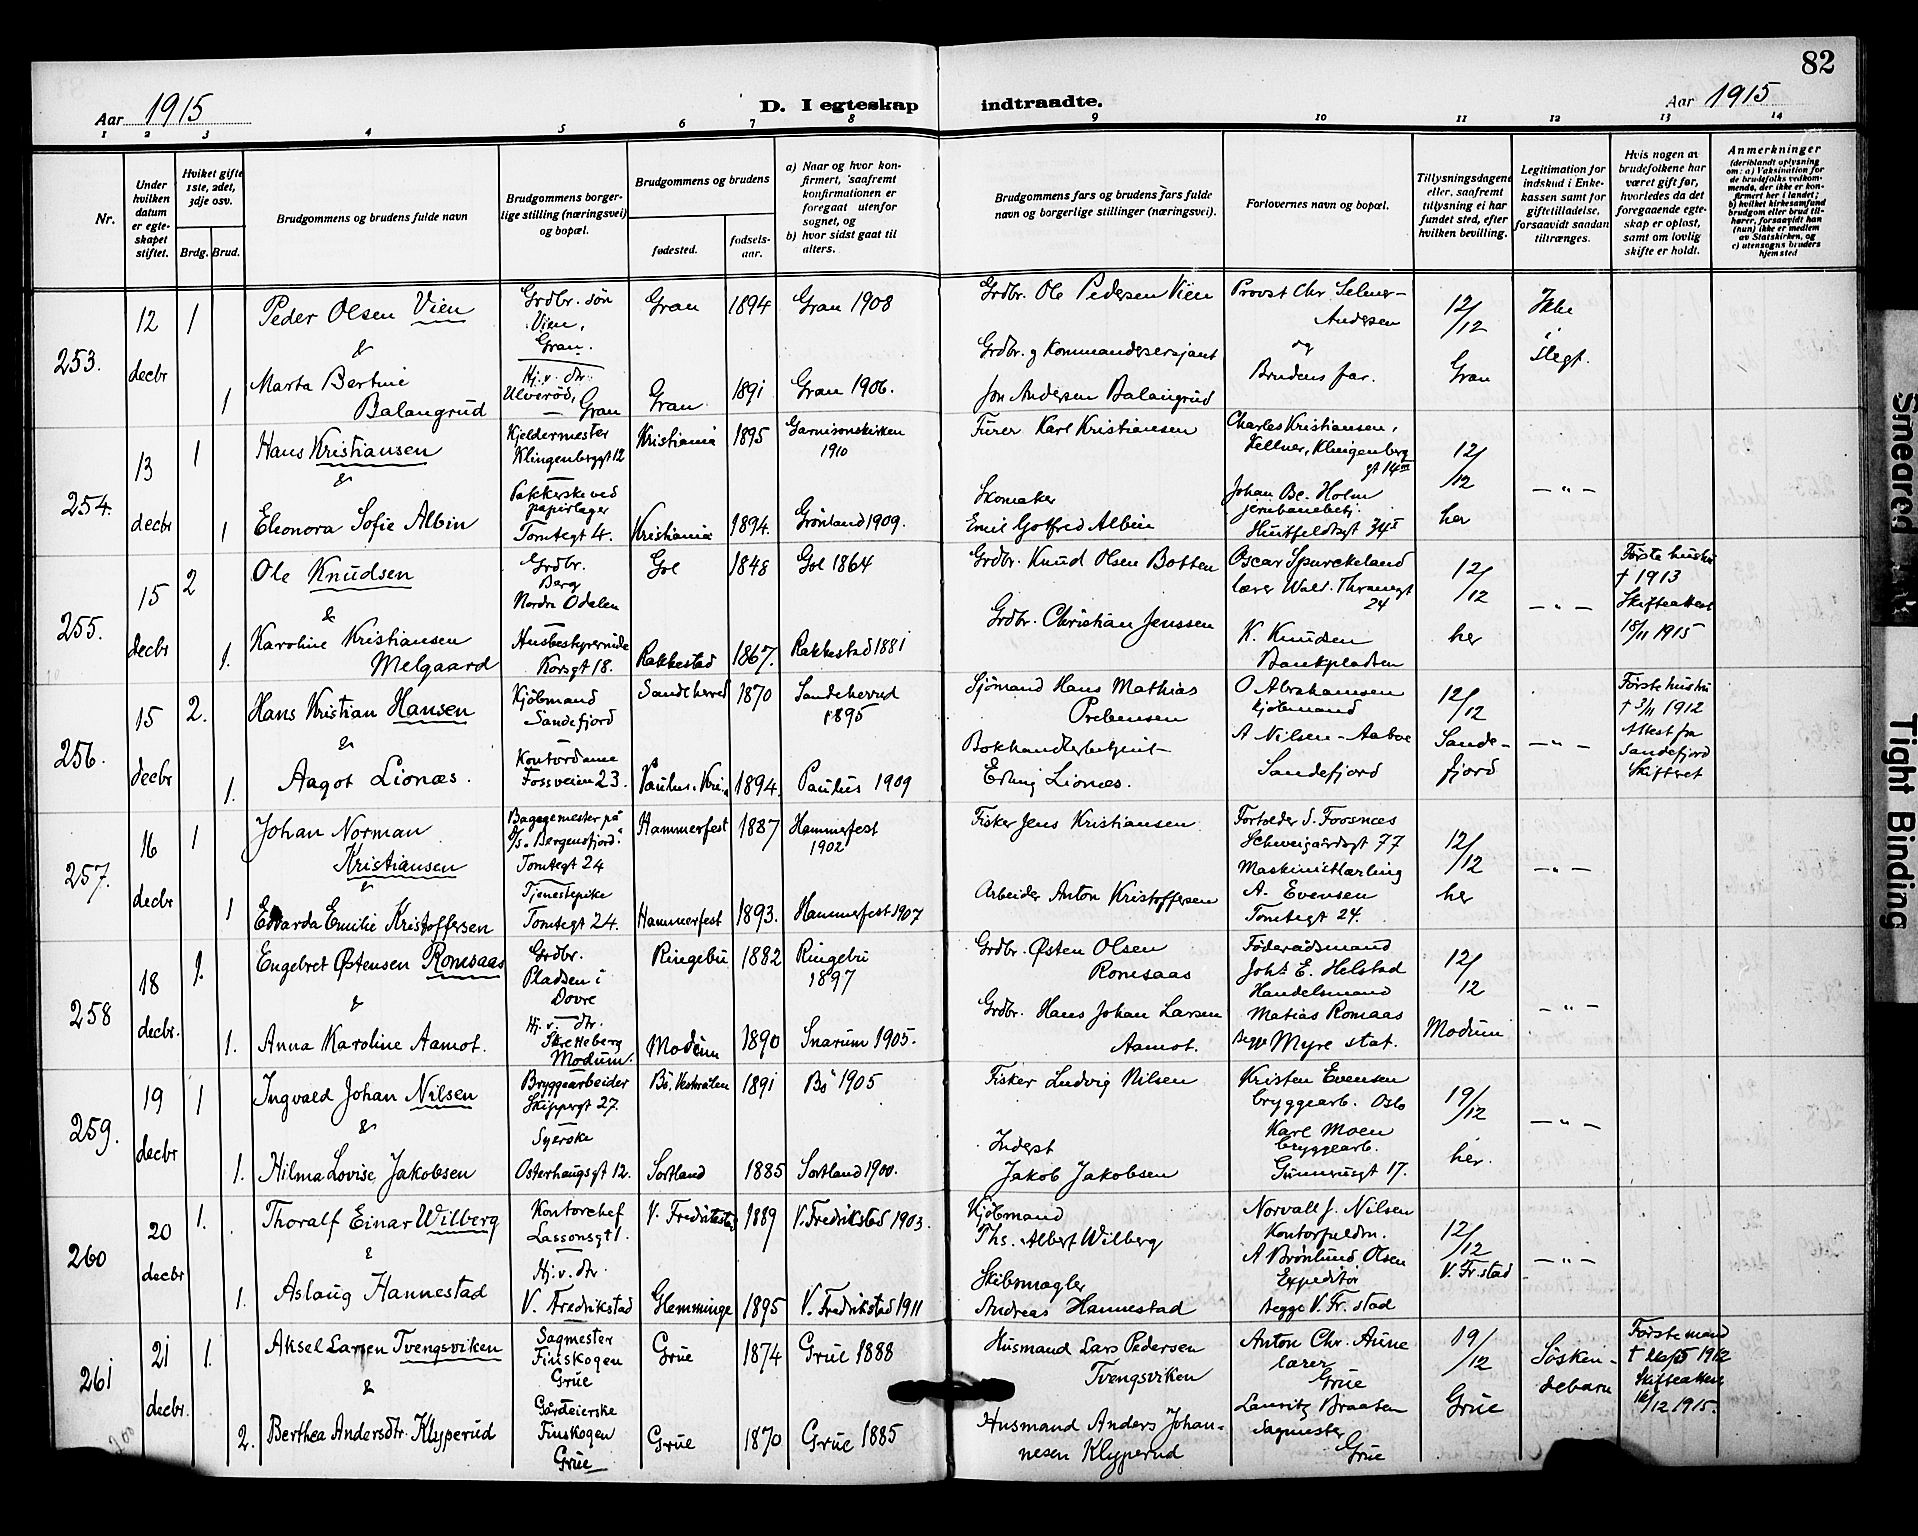 82
Aar 1915
D. I egteskap indtraadte.
Aar 1915
1 2 3 4 5 6 7 8 9 10 11 12 13 14
Nr.
Under hvilken datum er egteskapet stiftet.
Hvilket gifte 1ste, 2det, 3dje osv.
Brdg. Brud.
Brudgommens og brudens fulde navn
Brudgommens borgerlige stilling (næringsvei) og bopæl.
Brudgommens og brudens
fødested.
fødselsaar.
a) Naar og hvor konfirmert, saafremt konfirmationen er foregaat utenfor sognet, og
b) hvor sidst gaat til alters.
Brudgommens fars og brudens fars fulde navn og borgerlige stillinger (næringsvei).
Forlovernes navn og bopæl.
Tillysningsdagene eller, saafremt tillysning ei har fundet sted, efter hvilken bevilling.
Legitimation for indskud i Enkekassen samt for giftetilladelse, forsaavidt saadan tiltrænges.
Hvis nogen av brudefolkene har været gift før, hvorledes da det foregaaende egteskap er opløst, samt om lovlig skifte er holdt.
Anmerkninger
(deriblandt oplysning om: a) Vaksination for de brudefolks vedkommende, der ikke er konfirmert her i landet; b) hvilket kirkesamfund brudgom eller brud tilhører, forsaavidt han (hun) ikke er medlem av Statskirken, og c) utensogns bruders hjemsted
253.
12 decbr
1
Peder Olsen Vien
&
1
Marta Bertine
Balangrud
Grdbr. søn
Vien,
Gran.
Hj.v. dtr.
Ulverød,
Gran
Gran 1894 Gran 1908
Gran 1891 Gran 1906.
Grdbr. Ole Pedersen Vien
Grdbr. g Kommandersersjant
Jon Andersen Balangrud
Provst Chr Selmer-
Andersen
og
Brudens far.
12/12
Gran
Ikke
i
slegt.
254.
13 decbr
1
Hans Kristiansen
&
1
Eleonora Sofie Albin
Kjeldermester
Klingenberggt 12
Pakkerske ved
papirlager
Tomtegt 4.
Kristiania 1895 Garnisonskirken
1910
Kristiania 1894. Grønland 1909.
Furer Karl Kristiansen
Skomaker
Emil Gotfred Albin
Charles Kristiansen,
Kellner, Klingenberg
gt 14 III
Johan Be. Holm
jernbanebetj.
Huitfeldtsgt 34 I
12/12
her
— „ —
255.
15 decbr
2
Ole Knudsen
&
1.
Karoline Kristiansen
Melgaard
Grdbr.
Berg
Nordre Odalen
Husbestyrerinde
Korsgt 18.
Gol 1848 Gol 1864
Rakkestad 1867. Rakkestad 1881
Grdbr. Knud Olsen Botten
Grdbr. Christian Jenssen
Oscar Spurckeland
lærer Wald. Thranesgt
24
K. Knudsen
Bankpladsen
12/12
her
— „ —
Første hustru
† 1913
Skifteattest
18/11 1915
256.
15 decbr
2.
Hans Kristian Hansen
&
1.
Aagot Lionæs.
Kjøbmand
Sandefjord
Kontordame
Fossveien 23.
Sandeherred 1870 Sandeherred
1895
Paulus. Kri.a 1894. Paulus 1909
Sjømand Hans Mathias
Prebensen
Bokhandlerbetjent
Erling Lionæs.
O Abrahamsen
kjøbmand
A Nilsen-Aaboe
Sandefjord
12/12
Sande-
fjord
— „ —
Første hustru
† 3/11 1912
Attest fra
Sandefjord
Skifteret
257.
16 decbr
1
Johan Norman
Kristiansen
&
1
Edvarda Emilie Kristoffersen
Bagagemester på
D/s. „Bergensfjord."
Tomtegt 24
Tjenestepike
Tomtegt 24.
Hammerfest 1887 Hammerfest
1902
Hammerfest 1893. Hammerfest 1907
Fisker Jens Kristiansen
Arbeider Anton Kristoffersen
Forholder S. Foosnæs
Schweigaardsgt 77
Maskinistlærling
A. Evensen
Tomtegt 24.
12/12
her
— „ —
258
18 decbr.
1.
Engebret Østensen Romsaas
&
1.
Anna Karoline Aamot.
Grdbr.
Pladsen i
Dovre
Hj.v. dtr.
Skretteberg
Modum.
Ringebu 1882 Ringebu
1897
Modum 1890 Snarum 1905.
Grdbr. Østen Olsen
Romsaas
Grdbr. Hans Johan Larsen
Aamot.
Føderaadsmand
Johs E. Helstad
Handelsmand
Matias Romsaas
begge Myre stat.
12/12
Modum
— „ —
259.
19 decbr
1
Ingvald Johan Nilsen
&
1.
Hilma Lovise Jakobsen
Bryggearbeider
Skippergt 27.
Syerske
Osterhausgt 12.
Bø, Vesteraalen 1891 Bø 1905
Sortland 1885 Sortland 1900.
Fisker Ludvig Nilsen
Inderst
Jakob Jakobsen
Kristen Evensen
bryggearb. Oslo
Karl Moen
bryggearb.
Gunnerusgt 17.
19/12
her.
— „ —
260
20 decbr
1.
Thoralf Einar Wilberg
&
1.
Aslaug Hannestad
Kontorchef
Lassonsgt 1.
Hj.v. dtr.
V. Fredrikstad
V. Fredrikstad 1889 V. Fredrikstad 1903.
Glemminge 1895 V. Fredrikstad 1911
Kjøbmand
Ths. Albert Wilberg
Skibsmægler
Andreas Hannestad
Norvall J. Nilsen
Kontorfuldm.
A Brønlund Olsen
Expeditør
begge V. Fr. stad
12/12
V. Fr. stad
— „ —
261
21 decbr.
1.
Aksel Larsen Tvengsviken
&
2.
Berthea Andersdtr. Klyperud
Sagmester
Finskogen
Grue
Gårdeierske
Finskogen
Grue
Grue 1874 Grue 1888
Grue 1870 Grue 1885
Husmand Lars Pedersen
Tvengsviken
Husmand Anders Johan-
nesen Klyperud
Anton Chr. Aune
lærer
Grue
Lauritz Braaten
Sagmester
Grue
19/12
Grue
Søsken-
debarn
Første mand
† 26/5 1912
Skifteattest
16/12 1915.
200
Smeared
Tight Binding